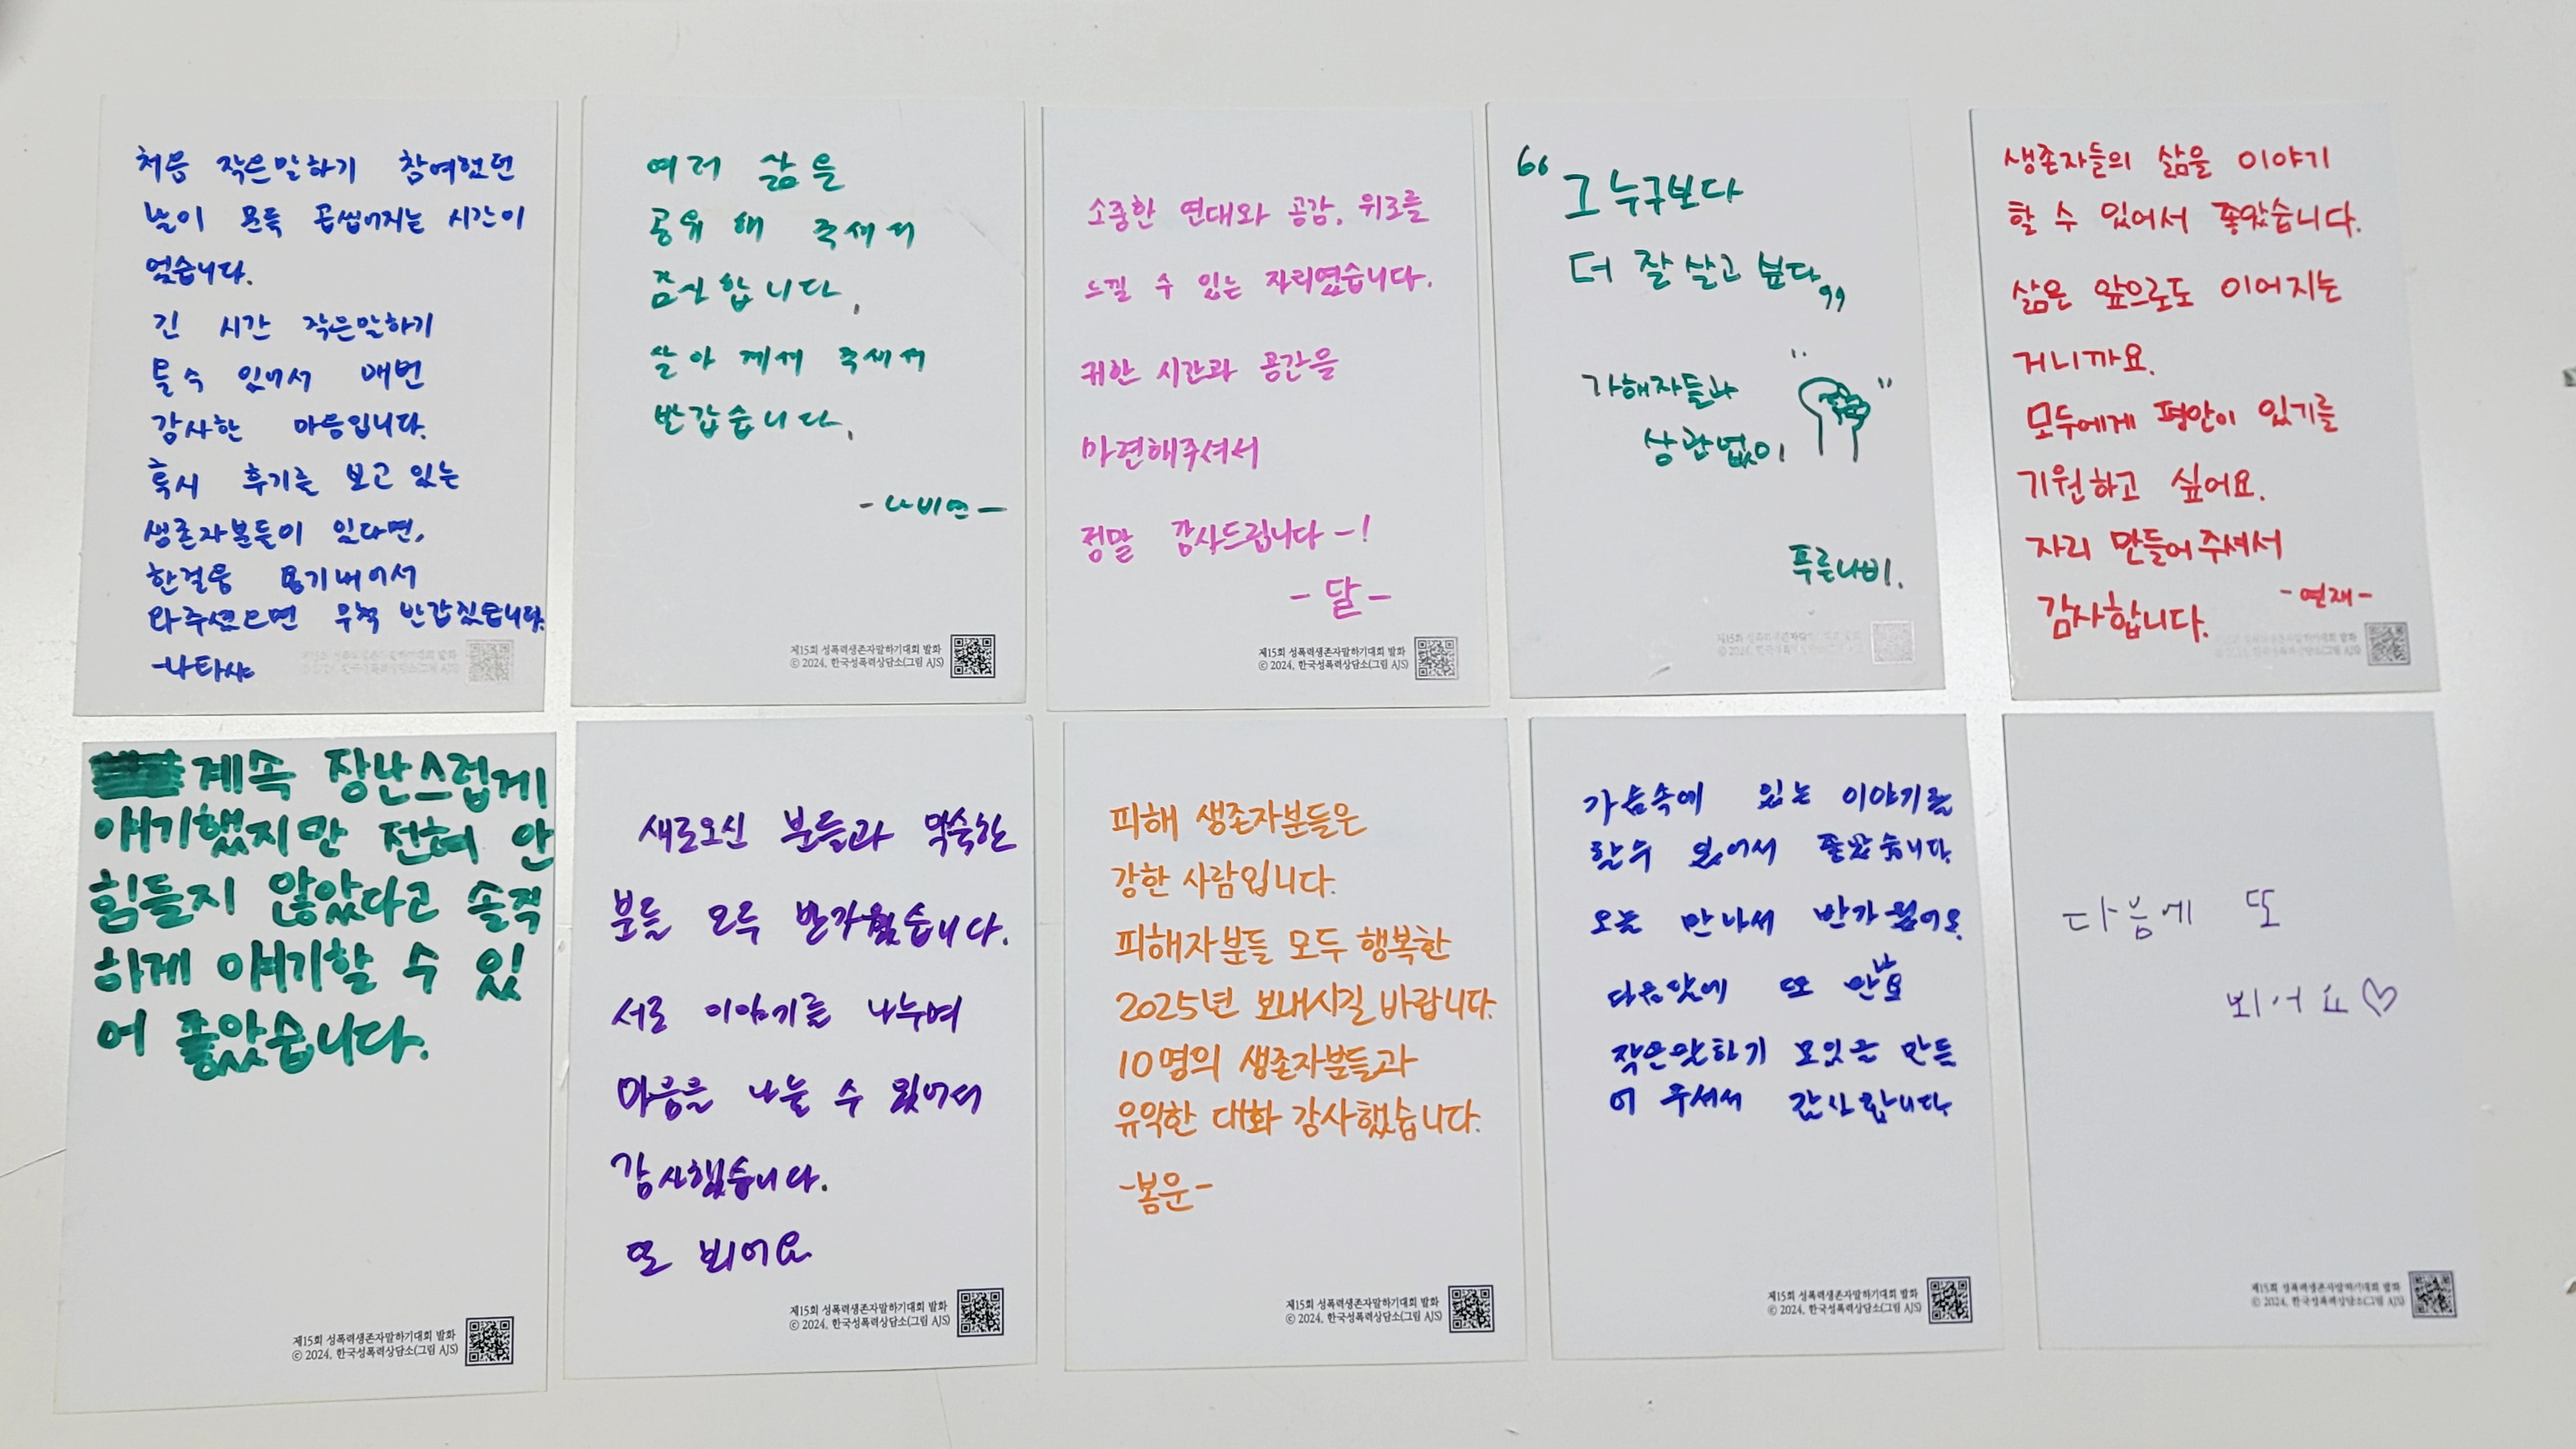 처음 작은말하기 참여했던
날이 문득 곱씹어지는 시간이
었습니다.
긴 시간 작은말하기
올 수 있어서 매번
감사한 마음입니다.
혹시 후기를 보고 있는
생존자분들이 있다면,
한걸음 용기내어서
와주셨으면 무척 반갑겠습니다.
-나타샤
여러 삶을
공유 해 주셔서
감사합니다.
살아 계셔 주셔서
반갑습니다.
-나비연-
제15회 성폭력생존자말하기대회 발화
© 2024. 한국성폭력상담소(그림 AJS)
소중한 연대와 공감, 위로를
느낄 수 있는 자리였습니다.
귀한 시간과 공간을
마련해주셔서
정말 감사드립니다-!
-달-
제15회 성폭력생존자말하기대회 발화
© 2024. 한국성폭력상담소(그림 AJS)
“그 누구보다
더 잘 살고 싶다”
가해자들과
상관없이
푸른나비.
생존자들의 삶을 이야기
할 수 있어서 좋았습니다.
삶은 앞으로도 이어지는
거니까요.
모두에게 평안이 있기를
기원하고 싶어요.
자리 만들어주셔서
감사합니다. -연재-
계속 장난스럽게
얘기했지만 전혀 안
힘들지 않았다고 솔직
하게 얘기할 수 있
어 좋았습니다.
제15회 성폭력생존자말하기대회 발화
© 2024. 한국성폭력상담소(그림 AJS)
새로오신 분들과 익숙한
분들 모두 반가웠습니다.
서로 이야기를 나누며
마음을 나눌 수 있어서
감사했습니다.
또 뵈어요
제15회 성폭력생존자말하기대회 발화
© 2024. 한국성폭력상담소(그림 AJS)
피해 생존자분들은
강한 사람입니다.
피해자분들 모두 행복한
2025년 보내시길 바랍니다.
10명의 생존자분들과
유익한 대화 감사했습니다.
-봄운-
제15회 성폭력생존자말하기대회 발화
© 2024. 한국성폭력상담소(그림 AJS)
가슴속에 있는 이야기를
할수 있어서 좋았습니다.
오늘 만나서 반가웠어요.
다음달에 또 만나요
작은말하기 모임을 만들
어 주셔서 감사합니다
제15회 성폭력생존자말하기대회 발화
© 2024. 한국성폭력상담소(그림 AJS)
다음에 또
뵈어요♡
제15회 성폭력생존자말하기대회 발화
© 2024. 한국성폭력상담소(그림 AJS)